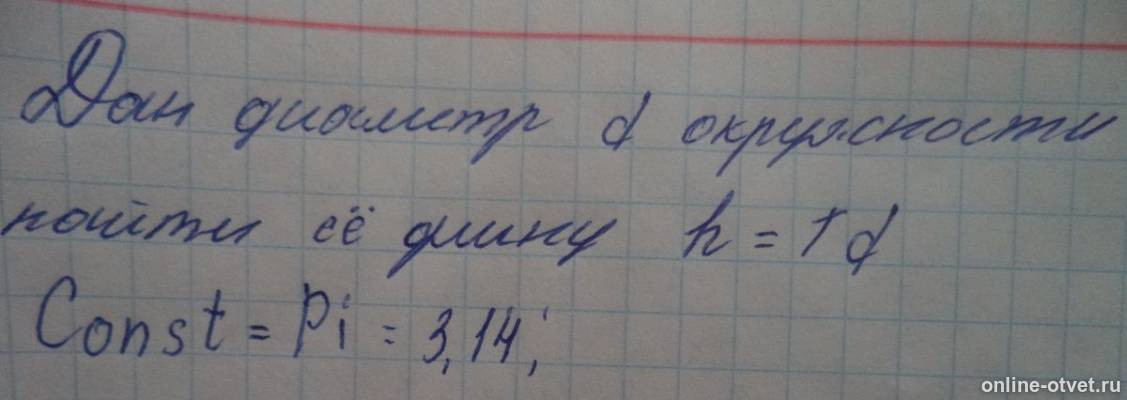 Дан диаметр d окружности
найти её длину h = т d
Const = Pi = 3,14;
online-otvet.ru